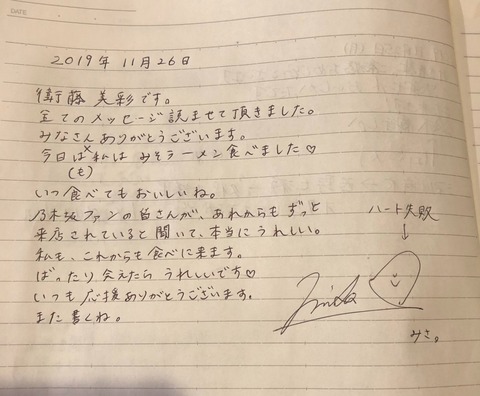 DATE
2019年 11月26日
衛藤 美彩です。
全てのメッセージ読ませて頂きました。
みなさんありがとうございます。
今日は私は みそラーメン食べました♡
(も)
いつ食べてもおいしいね。
乃木坂ファンの皆さんが、あれからもずっと
来店されていると聞いて、本当にうれしい。
私も、これからも食べに来ます。
ばったり会えたら うれしいです♡
いつも応援ありがとうございます。
また書くね。
ハート失敗
↓
みさ。